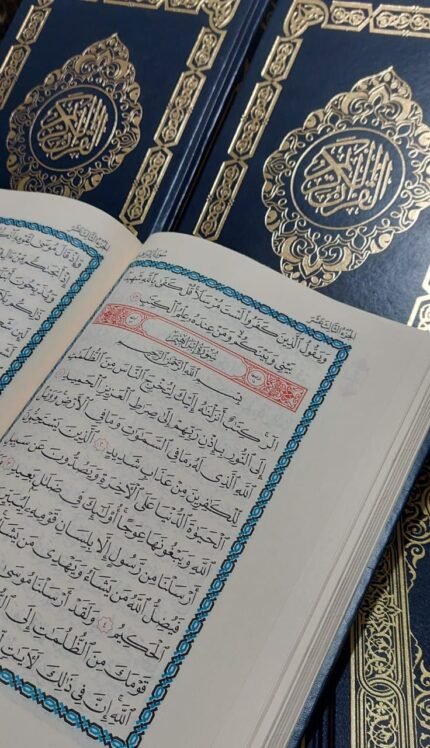 القرآن الكريم
القرآن الكريم
الجزء الثالث عشر
وَيَقُولُ ٱلَّذِينَ كَفَرُوا۟ لَسْتَ مُرْسَلًا قُلْ كَفَىٰ بِٱللَّهِ شَهِيدًا
بَيْنِى وَبَيْنَكُمْ وَمَنْ عِندَهُۥ عِلْمُ ٱلْكِتَٰبِ
سُورَةُ إِبْرَاهِيمَ
بِسْمِ ٱللَّهِ ٱلرَّحْمَٰنِ ٱلرَّحِيمِ
الٓر كِتَٰبٌ أَنزَلْنَٰهُ إِلَيْكَ لِتُخْرِجَ ٱلنَّاسَ مِنَ ٱلظُّلُمَٰتِ
إِلَى ٱلنُّورِ بِإِذْنِ رَبِّهِمْ إِلَىٰ صِرَٰطِ ٱلْعَزِيزِ ٱلْحَمِيدِ ١
ٱللَّهِ ٱلَّذِى لَهُۥ مَا فِى ٱلسَّمَٰوَٰتِ وَمَا فِى ٱلْأَرْضِ
لِّلْكَٰفِرِينَ مِنْ عَذَابٍ شَدِيدٍ ٢ ٱلَّذِينَ يَسْتَحِبُّونَ
ٱلْحَيَوٰةَ ٱلدُّنْيَا عَلَى ٱلْءَاخِرَةِ وَيَصُدُّونَ عَن سَبِيلِ
ٱللَّهِ وَيَبْغُونَهَا عِوَجًا أُو۟لَٰٓئِكَ فِى ضَلَٰلٍۭ بَعِيدٍ ٣
أَرْسَلْنَا مِن رَّسُولٍ إِلَّا بِلِسَانِ قَوْمِهِۦ لِيُبَيِّنَ
فَيُضِلُّ ٱللَّهُ مَن يَشَآءُ وَيَهْدِى مَن يَشَآءُ
ٱلْحَكِيمُ ٤ وَلَقَدْ أَرْسَلْنَا مُوسَىٰ
قَوْمَكَ مِنَ ٱلظُّلُمَٰتِ إِلَى
ٱللَّهِ إِنَّ فِى ذَٰلِكَ لَءَايَٰتٍ